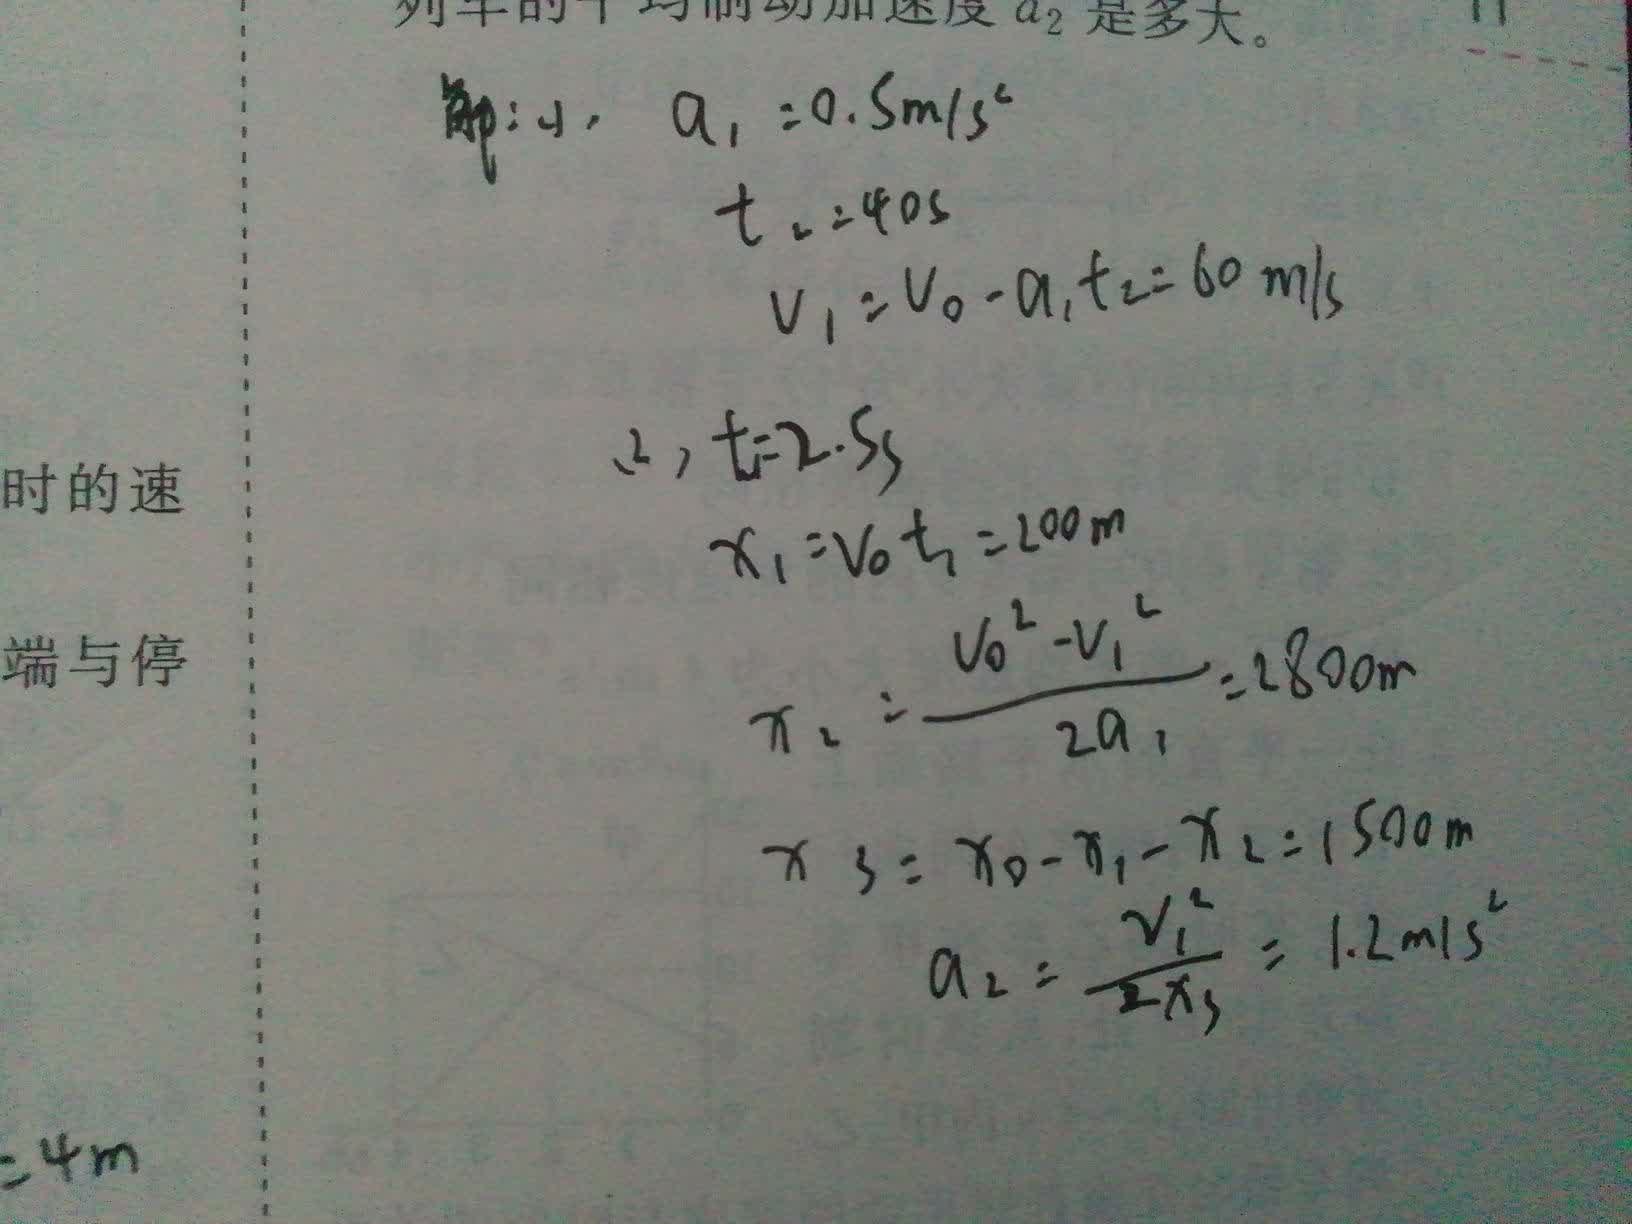 列车的平均制动加速度 a₂ 是多大。
解:(1), a₁=0.5m/s²
t₂=40s
v₁=v₀-a₁t₂=60m/s
时的速
(2), t₁=2.5s
x₁=v₀t₁=200m
端与停
x₂=(v₀²-v₁²)/(2a₁)=2800m
x₃=x₀-x₁-x₂=1500m
a₂=v₁²/(2x₃)=1.2m/s²
=4m